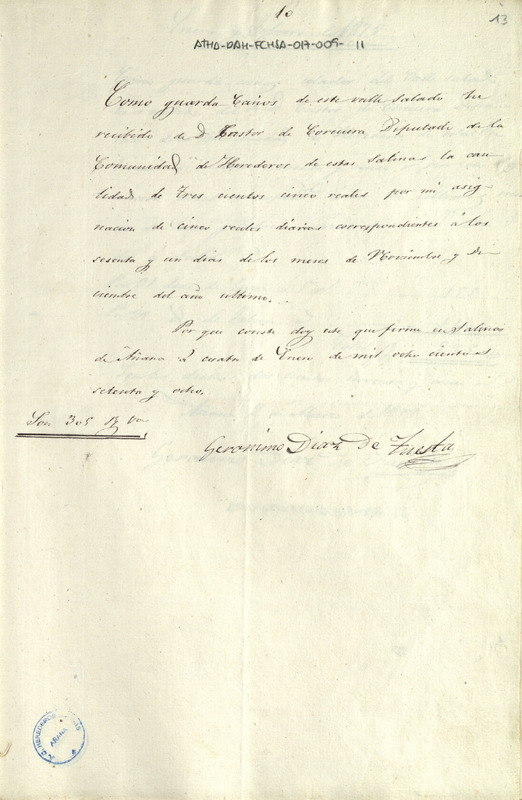 10
13
ATHA-DAH-FCHSA-017-009-11
Como guarda Caños de este valle salado he
recibido de D. Castor de Corcuera Diputado de la
Comunidad de Herederos de estas Salinas la can-
tidad de tres cientos cinco reales por mi asig-
nacion de cinco reales diarios correspondientes á los
sesenta y un dias de los meses de Noviembre y Di-
ciembre del año ultimo.
Por que conste doy este que firmo en Salinas
de Añana á cuatro de Enero de mil ocho cientos
setenta y ocho.
Son 305 Rs vn
Geronimo Diaz De Tuesta
AÑANA